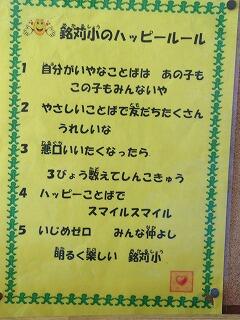 銘苅小のハッピールール
1 自分がいやなことばは あの子も
この子もみんないや
2 やさしいことばで友だちたくさん
うれしいな
3 悪口いいたくなったら
3びょう数えてしんこきゅう
4 ハッピーことばで
スマイルスマイル
5 いじめゼロ みんな仲よし
明るく楽しい 銘苅小